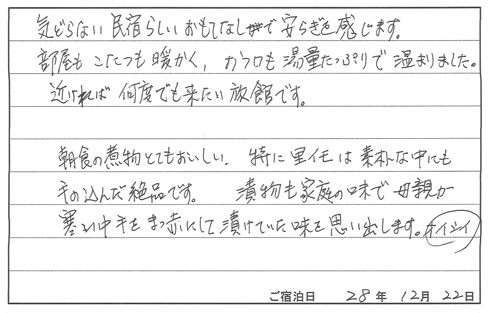 気どらない民宿らしいおもてなしで安らぎを感じます。
部屋もこたつも暖かく、お フロも湯量たっぷりで温まりました。
近ければ何度でも来たい旅館です。
朝食の煮物とてもおいしい。特に里イモは素朴な中にも
手の込んだ絶品です。 漬物も家庭の味で母親が
寒い中手をまっ赤にして漬けていた味を思い出します。オイシイ
ご宿泊日 28年 12月 22日